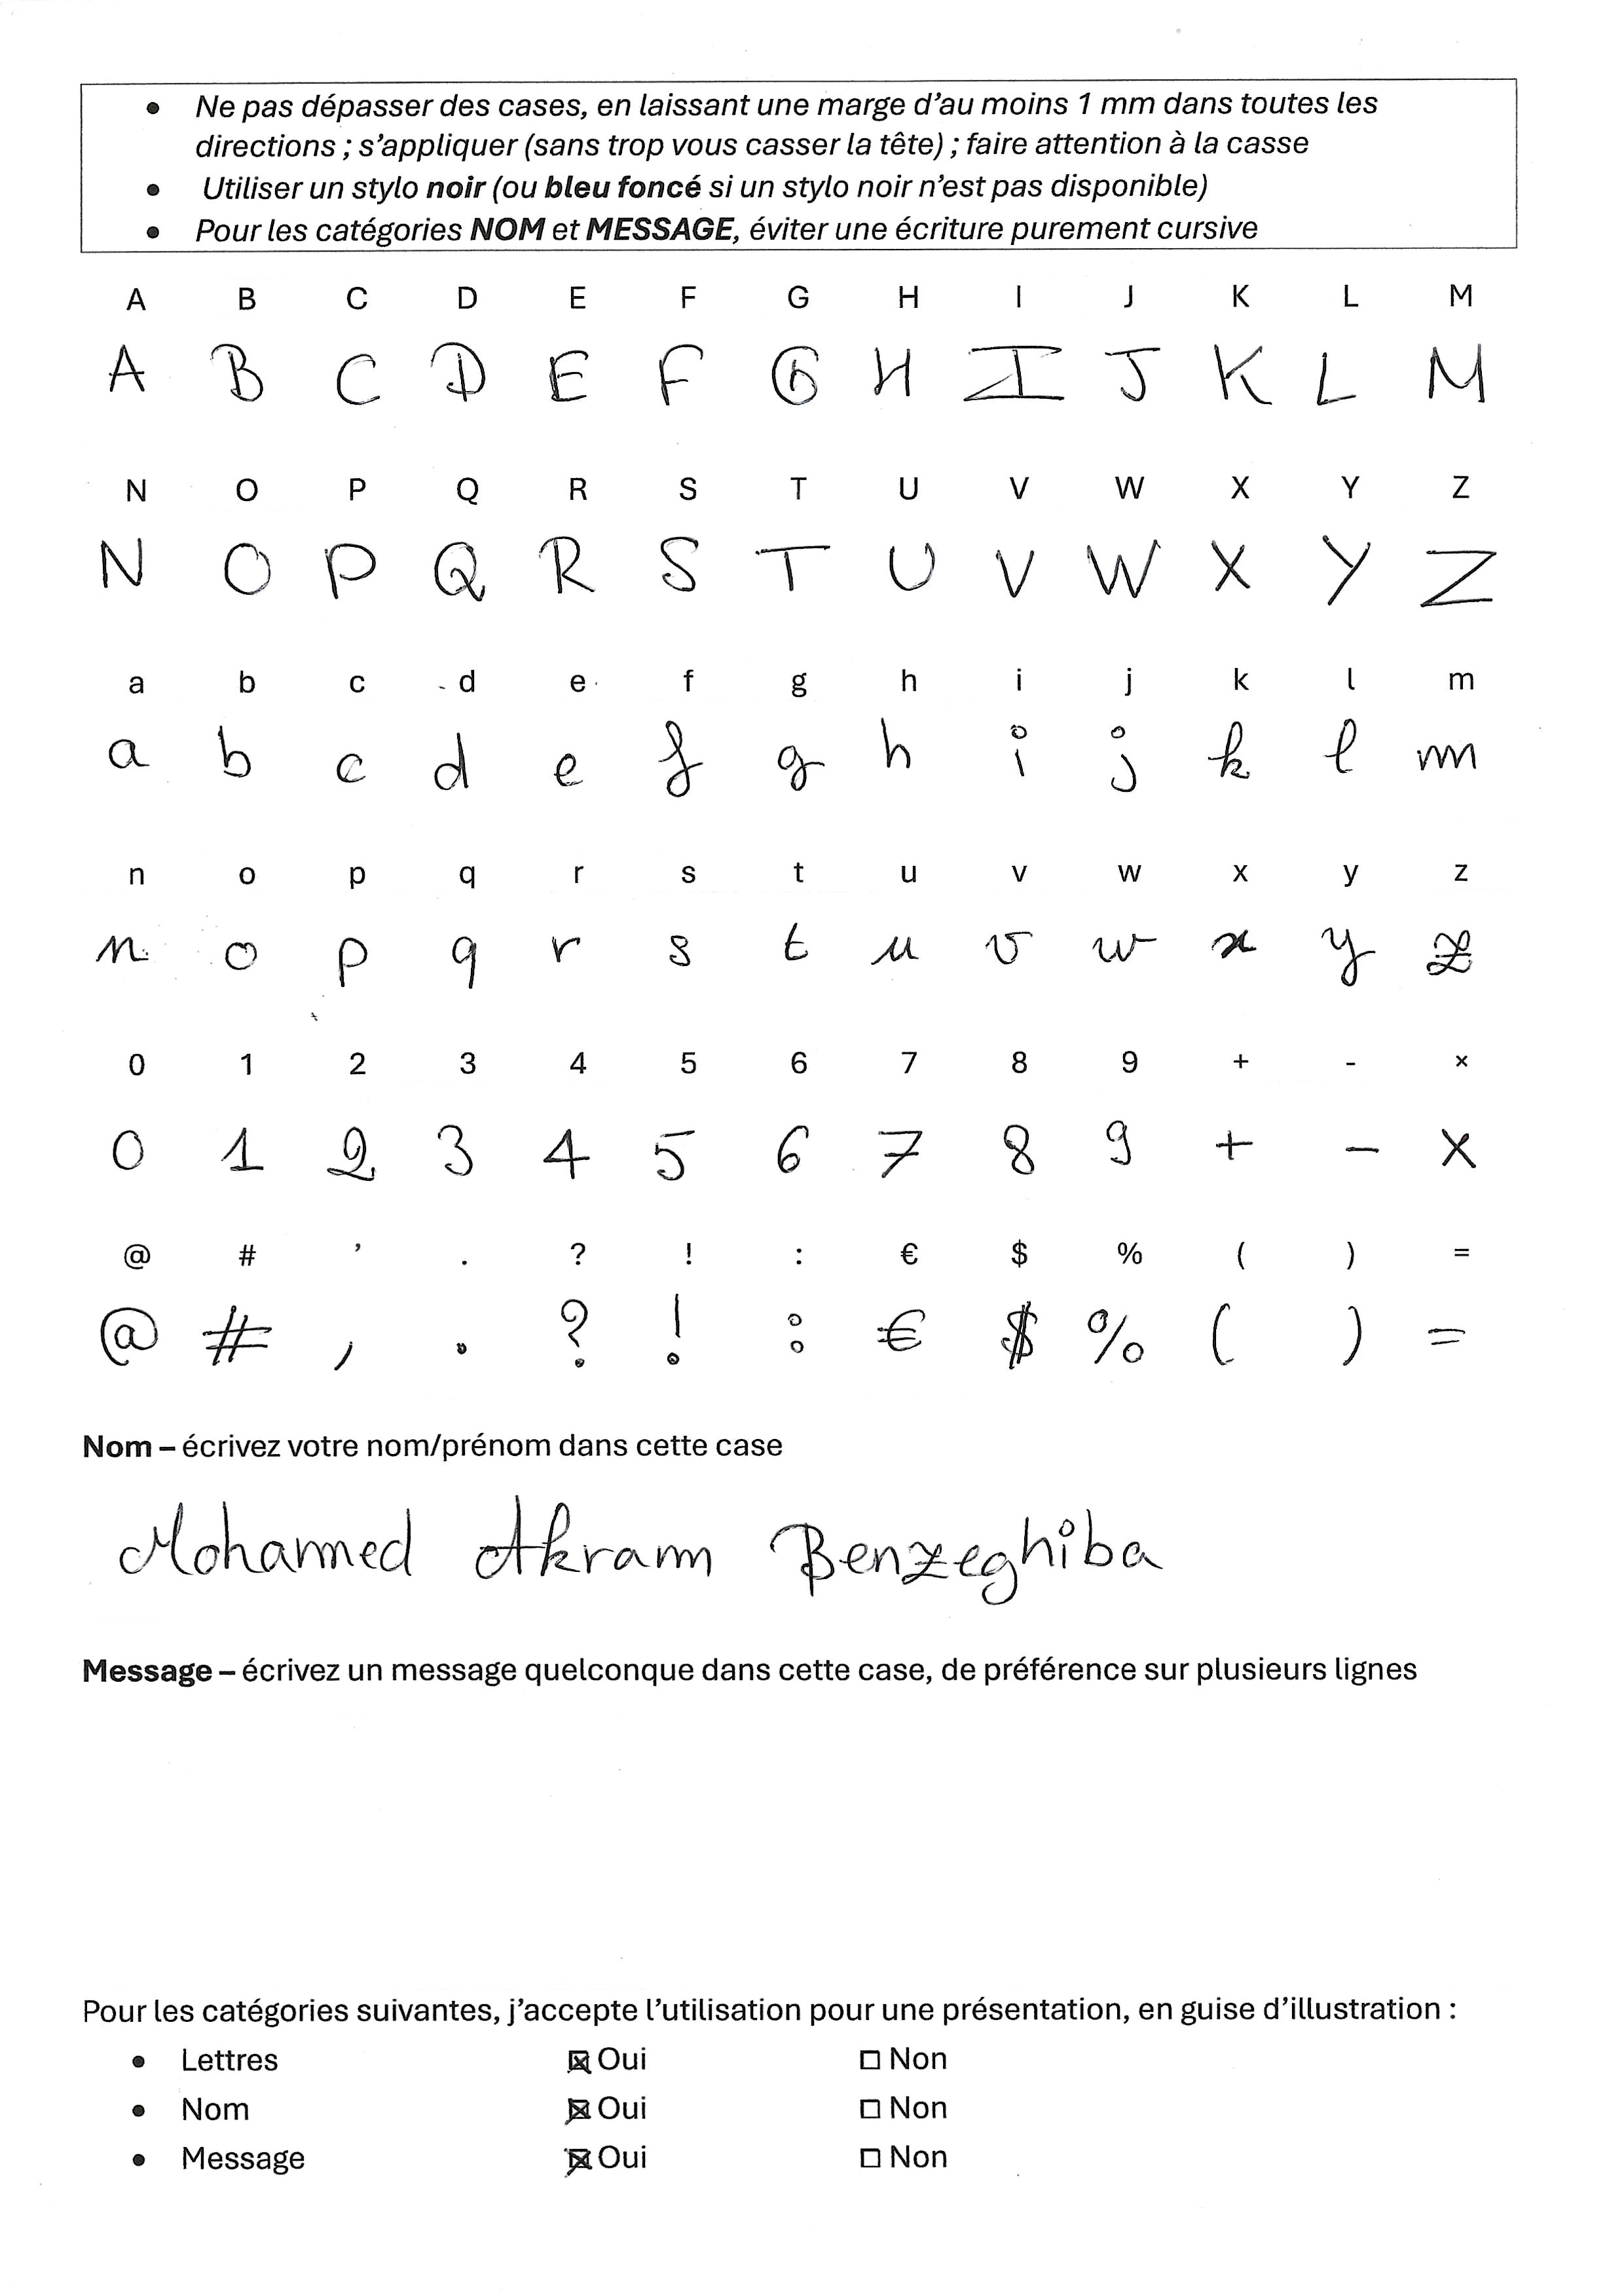 • Ne pas dépasser des cases, en laissant une marge d’au moins 1 mm dans toutes les
directions ; s’appliquer (sans trop vous casser la tête) ; faire attention à la casse
• Utiliser un stylo noir (ou bleu foncé si un stylo noir n’est pas disponible)
• Pour les catégories NOM et MESSAGE, éviter une écriture purement cursive
A B C D E F G H I J K L M
A B C D E F G H I J K L M
N O P Q R S T U V W X Y Z
N O P Q R S T U V W X Y Z
a b c d e f g h i j k l m
a b c d e f g h i j k l m
n o p q r s t u v w x y z
n o p q r s t u v w x y z
0 1 2 3 4 5 6 7 8 9 + - ×
0 1 2 3 4 5 6 7 8 9 + - ×
@ # ’ . ? ! : € $ % ( ) =
@ # , . ? ! : € $ % ( ) =
Nom – écrivez votre nom/prénom dans cette case
Mohamed Akram Benzeghiba
Message – écrivez un message quelconque dans cette case, de préférence sur plusieurs lignes
Pour les catégories suivantes, j’accepte l’utilisation pour une présentation, en guise d’illustration :
• Lettres ☒ Oui ☐ Non
• Nom ☒ Oui ☐ Non
• Message ☒ Oui ☐ Non